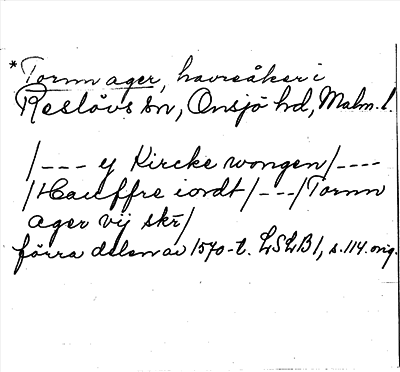 *Tornn ager, havreåker i
Reslövs sn, Onsjö hd, Malm. l.
/--- y Kircke wongen/----
/Hauffre iordt/---/Tornn
ager vij skr/
förra delen av 1570-t. LSLB1, s. 114. orig.